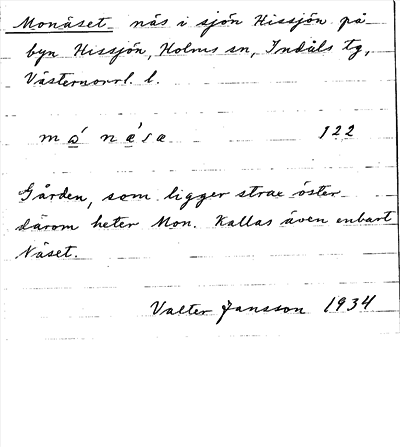 Monäset näs i sjön Hissjön på
byn Hissjön, Holms sn, Indals tg,
Västernorrl. l.
mó nǽsa 122
Gården, som ligger strax öster
därom heter Mon. Kallas även enbart
Näset.
Valter Jansson 1934